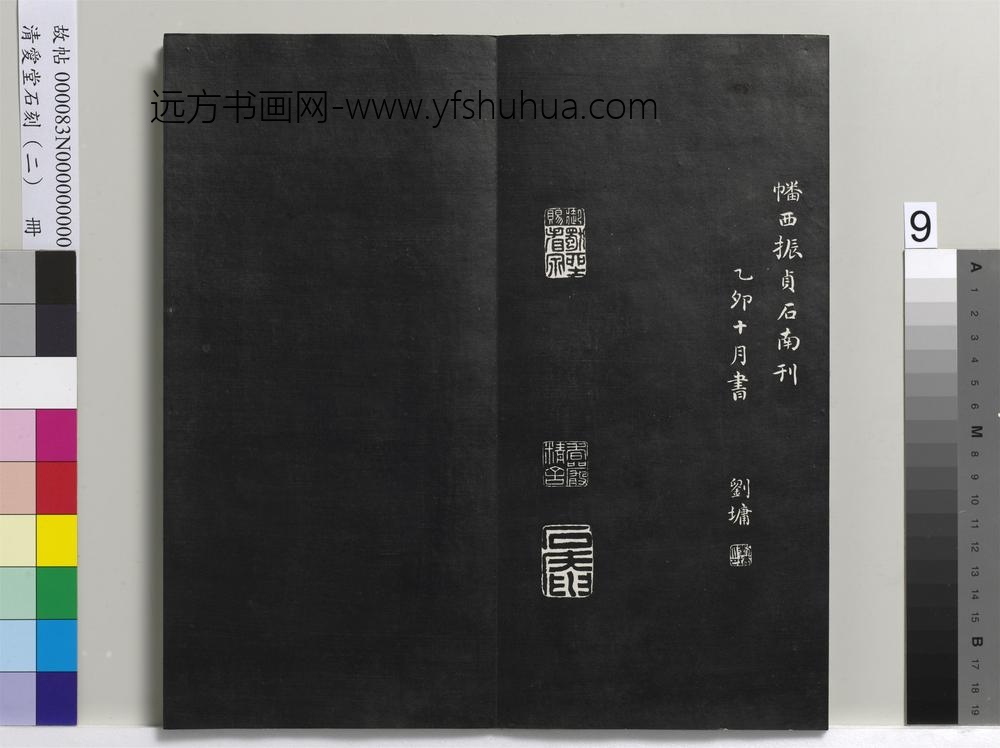 故帖 000083N000000000
清愛堂石刻（二） 冊
远方书画网-www.yfshuhua.com
幡西振貞石南刊
乙卯十月書
劉墉
御
賜
香嚴
精舍
石庵
9
A
1
2
3
4
5
6
M
8
9
10
11
12
13
14
15
B
17
18
19